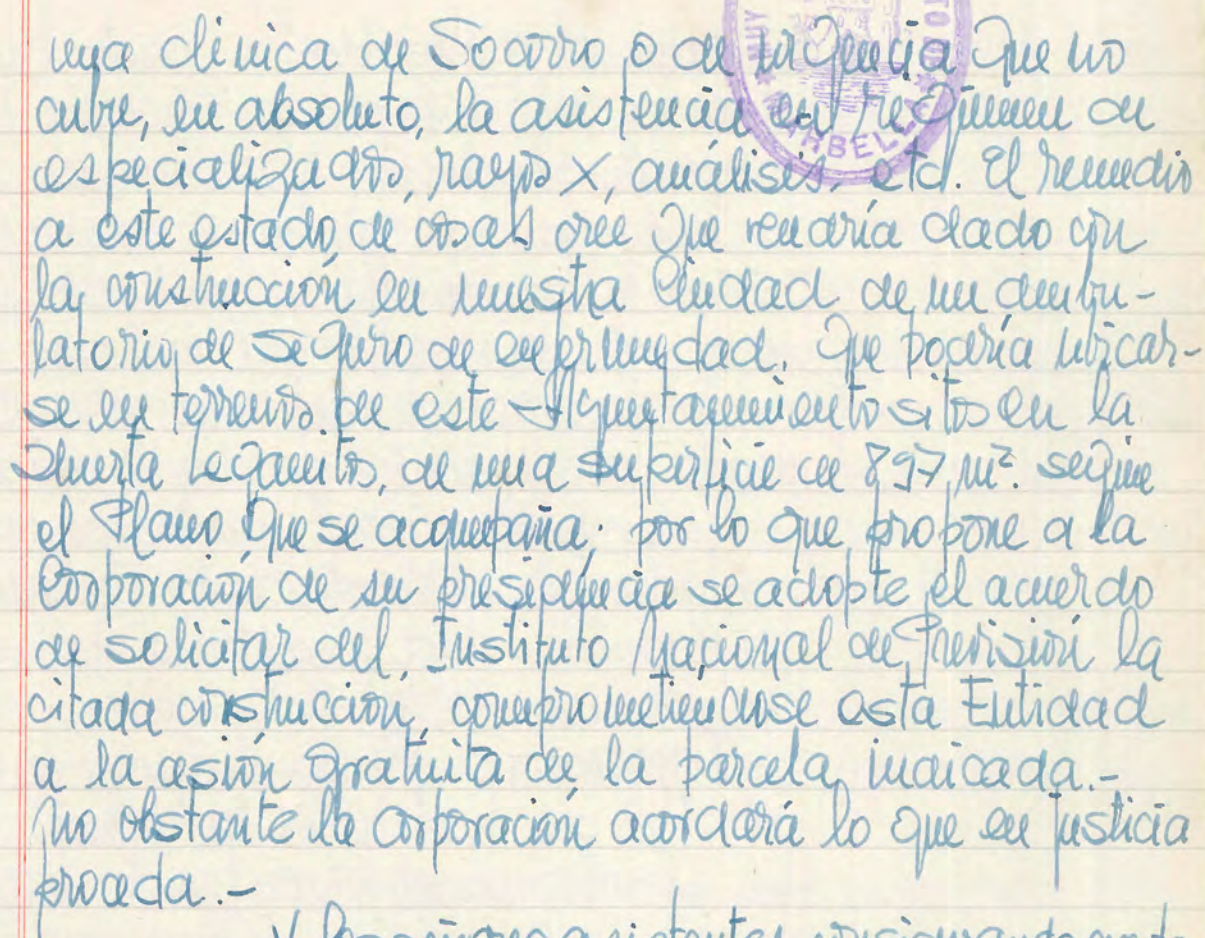 una clínica de Socorro o de urgencia que no
cubre, en absoluto, la asistencia en regimen de
especializados, rayos X, análisis, etc. El remedio
a este estado de cosas cree que vendría dado con
la construcción en nuestra Ciudad de un ambu-
latorio de Seguro de enfermedad, que podría ubicar-
se en terrenos de este Ayuntamiento sitos en la
Huerta Leganitos, de una superficie de 897 m². según
el Plano que se acompaña; por lo que propone a la
Corporación de su presidencia se adopte el acuerdo
de solicitar del Instituto Nacional de Previsión la
citada construcción, comprometiendose esta Entidad
a la cesión gratuita de la parcela indicada.-
No obstante la Corporación acordará lo que en justicia
proceda.-
Y los señores asistentes
MUY
MARBELLA